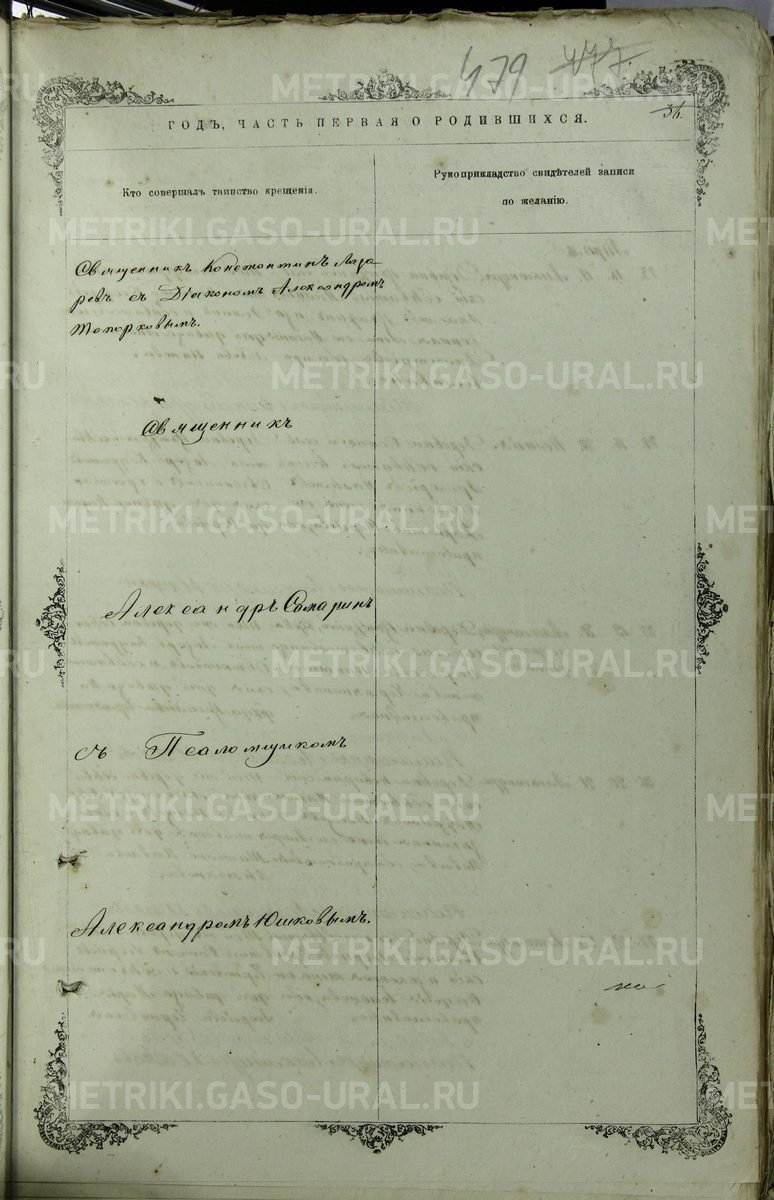 479 477.
34.
ГОДЪ, ЧАСТЬ ПЕРВАЯ О РОДИВШИХСЯ.
Кто совершалъ таинство крещенія.
Рукоприкладство свидѣтелей записи
по желанію.
Священникъ Константинъ Лаза-
ревъ съ Діакономъ Александромъ
Топорковымъ.
Священникъ
Александръ Сомаринъ
съ Псаломщикомъ
Александромъ Юшковымъ.
METRIKI.GASO-URAL.RU